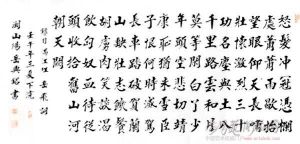 怒髮衝冠憑欄
處瀟瀟雨歇抬
望眼仰天長嘯
壯懷激烈三十
功名塵與土八
千里路雲和月
莫等閒白了少
年頭空悲切靖
康恥猶未雪臣
子恨何時滅駕
長車踏破賀蘭
山缺壯志飢餐
胡虜肉笑談渴
飲匈奴血待從
頭收拾舊山河
朝天闕
岳飛詞
壬午年三夏下浣
山陽岳興書